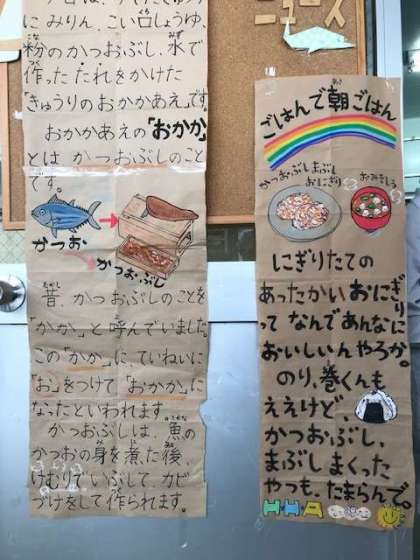 に みりん、こい口しょうゆ、
粉のかつおぶし、水で
作った たれをかけた
「きゅうりのおかかあえ」です。
おかかあえの「おかか」
とは かつおぶしのこと
です。
かつお
かつおぶし
昔 かつおぶしのことを
「かか」と呼んでいました。
この「かか」に、ていねいに
「お」をつけて「おかか」に
なったといわれます。
かつおぶしは、魚の
かつおの身を煮た後、
けむりでいぶして、カビ
づけをして作られます。
ニュース
ごはんで朝ごはん
かつおぶしまぶし
おにぎり
おみそしる
にぎりたての
あったかいおにぎり
って なんであんなに
おいしいんやろか。
のり、巻くんも
ええけど
かつおぶし、
まぶしまくった
やつも、たまらんで。
H・H・A